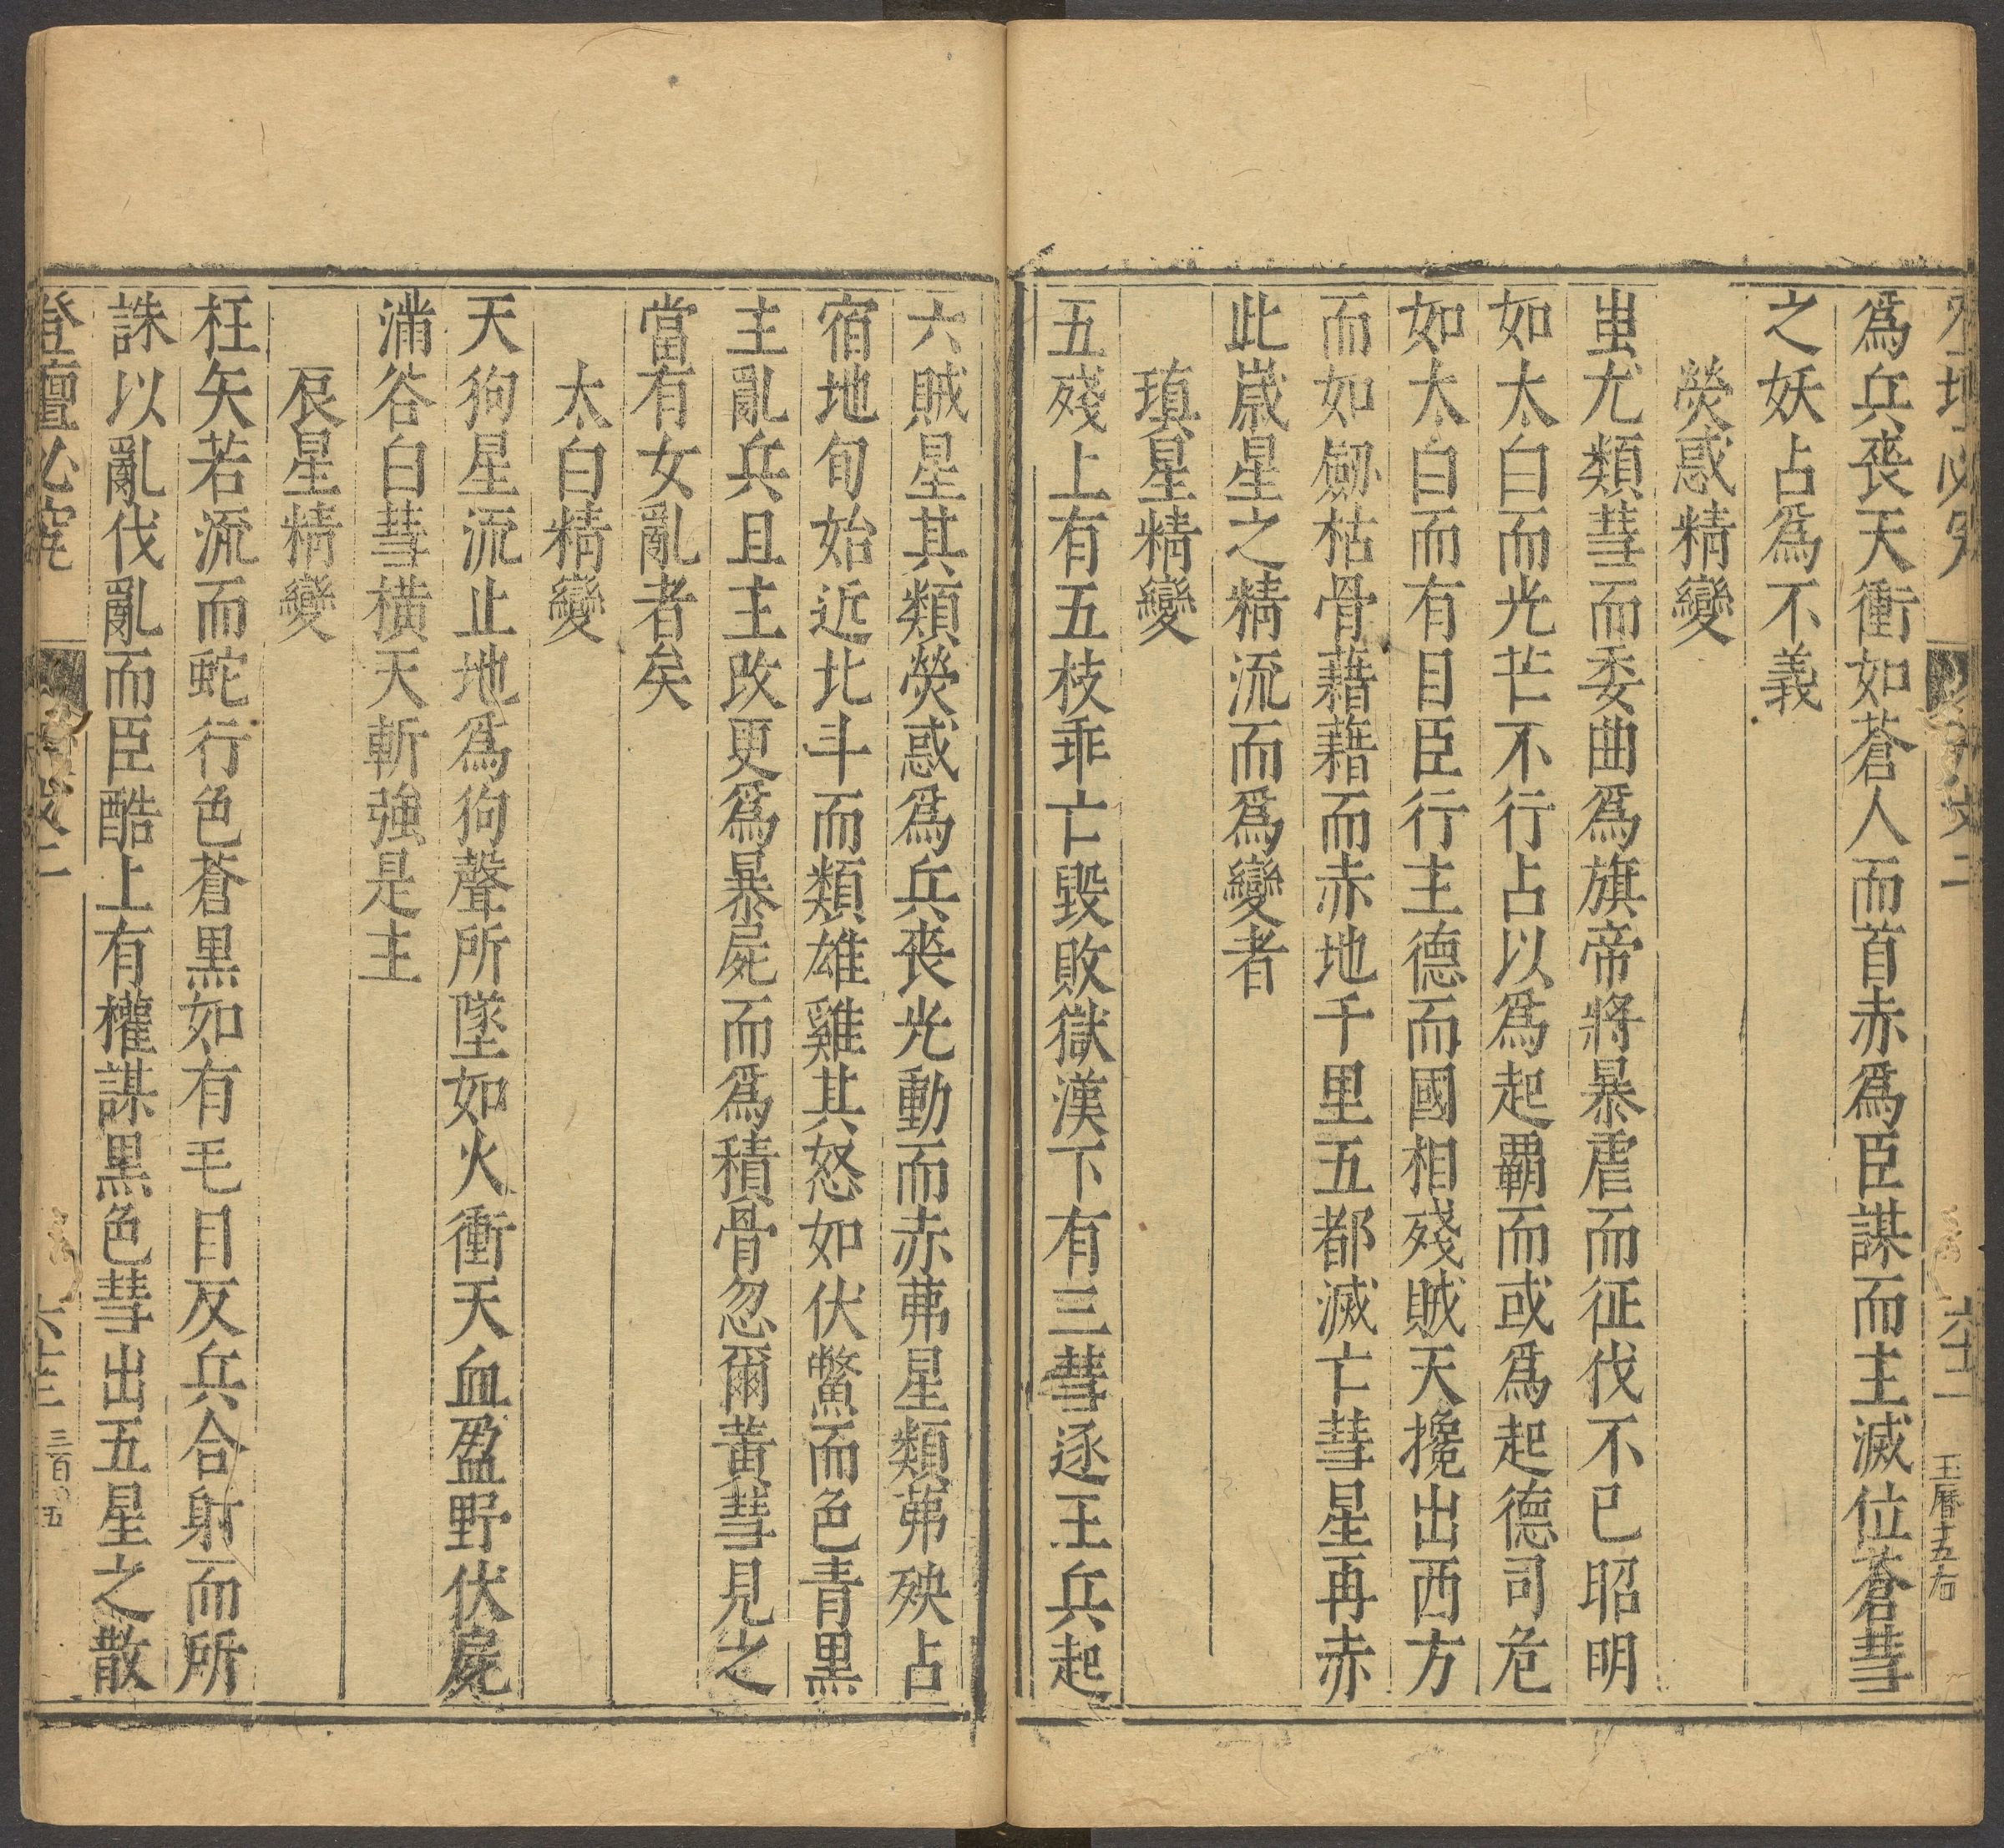 爲兵喪天衝如蒼人而首赤爲臣謀而主滅位蒼彗
之妖占爲不義
熒惑精變
蚩尤類彗而委曲爲旗帝將暴虐而征伐不已昭明
如太白而光芒不行占以爲起霸而或爲起德司危
如太白而有目臣行主德而國相殘賊天攙出西方
而如劒枯骨藉藉而赤地千里五都滅亡彗星再赤
此嵗星之精流而爲變者
瑱星精變
五殘上有五枝乖亡毀敗獄漢下有三彗逐王兵起
六賊星其類熒惑爲兵喪光動而赤茀星類茀殃占
宿地旬始近北斗而類雄雞其怒如伏鱉而色青黑
主亂兵且主改更爲暴屍而爲積骨忽爾黃彗見之
當有女亂者矣
太白精變
天狗星流止地爲狗聲所墜如火衝天血盈野伏屍
滿谷白彗橫天斬強是主
辰星精變
枉矢若流而蛇行色蒼黑如有毛目反兵合射而所
誅以亂伐亂而臣酷上有權謀黑色彗出五星之散
登壇必究 二 六十三 三百 五